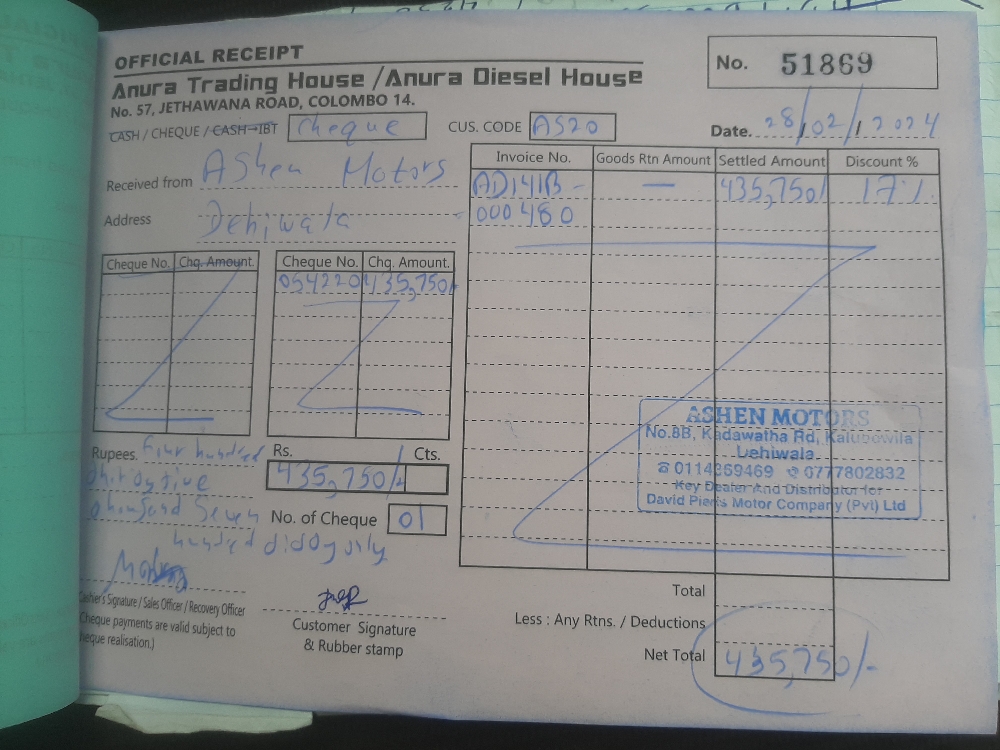 OFFICIAL RECEIPT
Anura Trading House /Anura Diesel House
No. 57, JETHAWANA ROAD, COLOMBO 14.
No. 51869
CASH / CHEQUE / CASH-IBT Cheque CUS. CODE AS20
Date. 28/02/2024
Received from Ashen Motors
Address Dehiwala
Invoice No. Goods Rtn Amount Settled Amount Discount %
AD141B- — 435,750/ 17%
000480
Cheque No. Chq. Amount. Cheque No. Chq. Amount.
054220 435,750/
ASHEN MOTORS
No.8B, Kadawatha Rd, Kalubowila
Dehiwala.
0114369469 0777802832
Key Dealer And Distributor for
David Pieris Motor Company (Pvt) Ltd
Rupees. Four hundred
Rs. Cts.
435,750/-
No. of Cheque 01
Cashier's Signature / Sales Officer / Recovery Officer
Cheque payments are valid subject to
cheque realisation.)
Customer Signature
& Rubber stamp
Total
Less : Any Rtns. / Deductions
Net Total 435,750/-